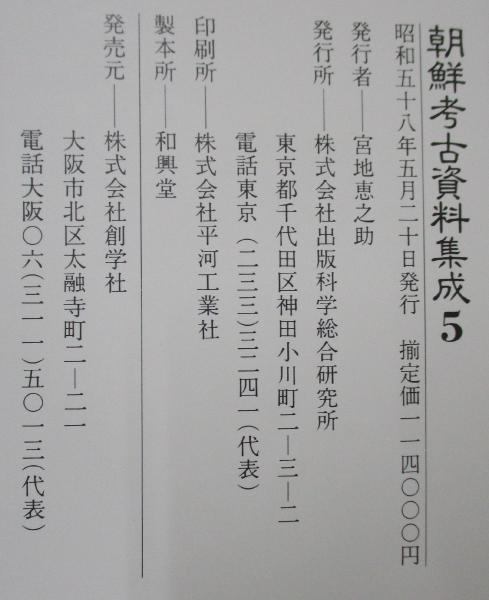 朝鮮考古資料集成 5
昭和五十八年五月二十日発行　揃定価一一四〇〇〇円
発行者――宮地恵之助
発行所――株式会社出版科学総合研究所
東京都千代田区神田小川町二―三―二
電話東京（二三三）三二四一（代表）
印刷所――株式会社平河工業社
製本所――和興堂
発売元――株式会社創学社
大阪市北区太融寺町二―二一
電話大阪〇六（三一一）五〇一三（代表）